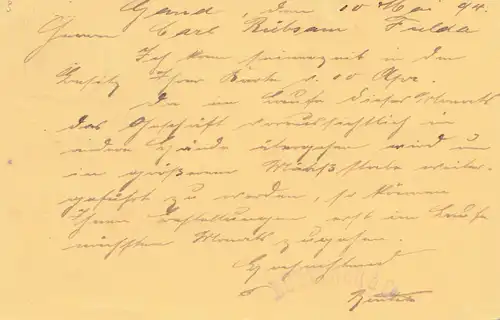 Gand, den 10 Mai 94.
Herrn Carl Rübsam Fulda
Ich kam seinerzeit in den
Besitz Ihrer Karte v. 10 Apr.
Da im Laufe dieses Monats
das Geschäft voraussichtlich in
andere Hände übergehen wird um
in größerem Maßstabe weiter-
geführt zu werden, so können
Ihnen Bestellungen erst im Laufe
nächsten Monats zugehen.
Hochachtend